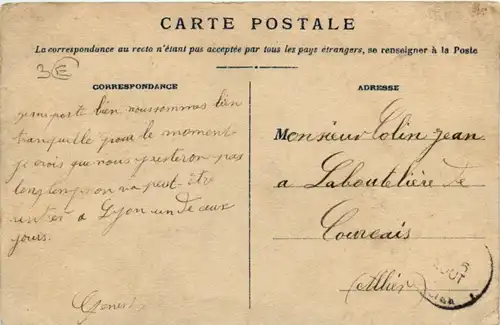 CARTE POSTALE
La correspondance au recto n'étant pas acceptée par tous les pays étrangers, se renseigner à la Poste
3 E
CORRESPONDANCE
je me porte bien nous sommes bien
tranquille pour le moment
je crois que nous y resteron pas
longtemps on va peut-être
rentrer a Lyon un de aux
jours.
ADRESSE
Monsieur Colin jean
a Laboutelière de
Coureais
(Allier)
5
AOUT